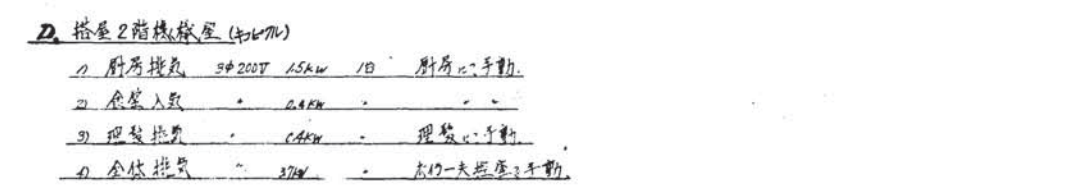 D. 搭屋2階機械室(キュービクル)
1) 厨房排気 3φ200V 1.5kw 1台 厨房にて手動.
2) 食堂入気 〃 0.4kw 〃 〃 〃
3) 理髪排気 〃 0.4kw 〃 理髪にて手動.
4) 全体排気 〃 3.7kw 〃 ボイラー夫控室で手動.